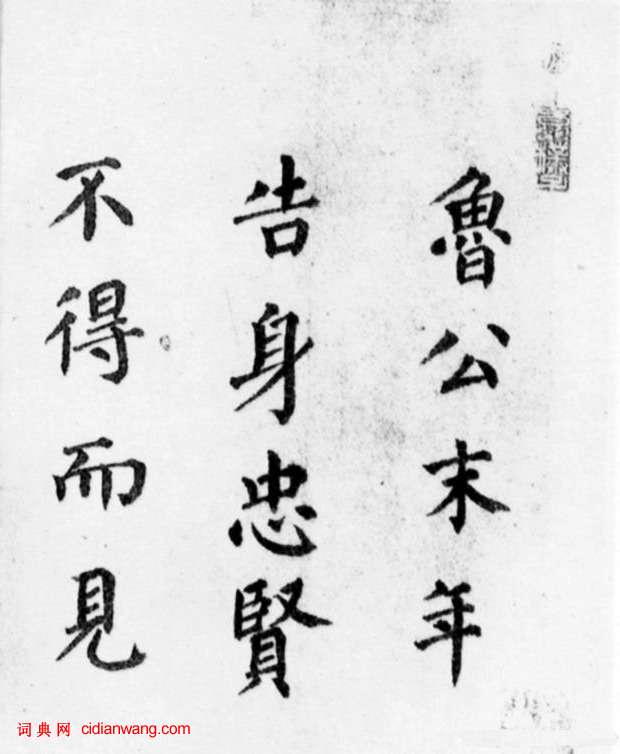 魯公末年
告身忠賢
不得而見
词典网 cidianwang.com